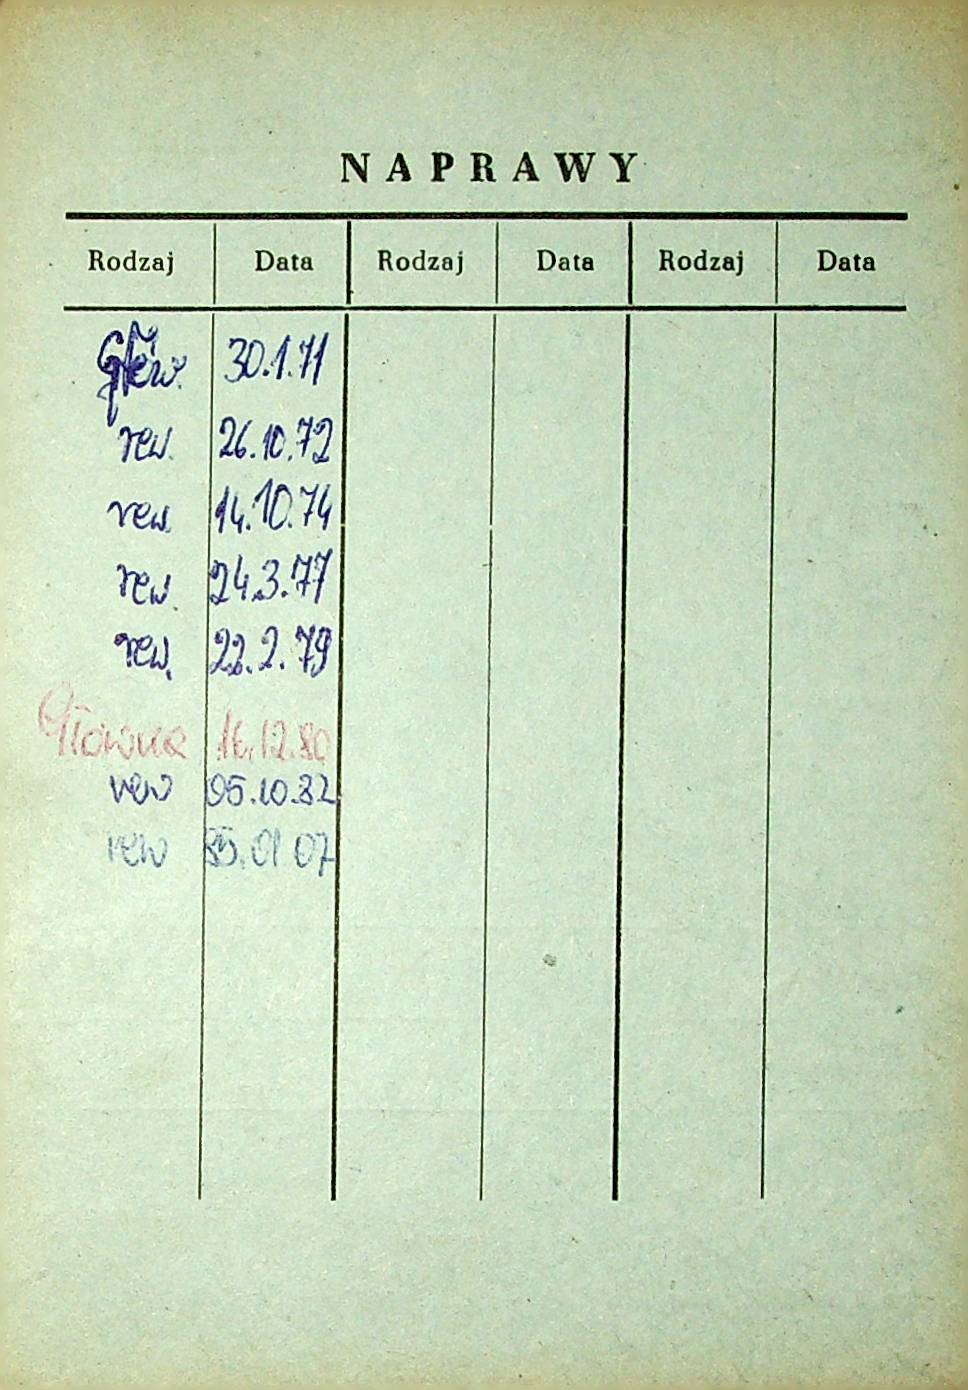 NAPRAWY
Rodzaj Data Rodzaj Data Rodzaj Data
głów. 30.1.71
rew. 26.10.72
rew. 14.10.74
rew. 24.3.77
rew. 22.2.79
Główna 16.12.80
rew 05.10.82
rew 85.01 07